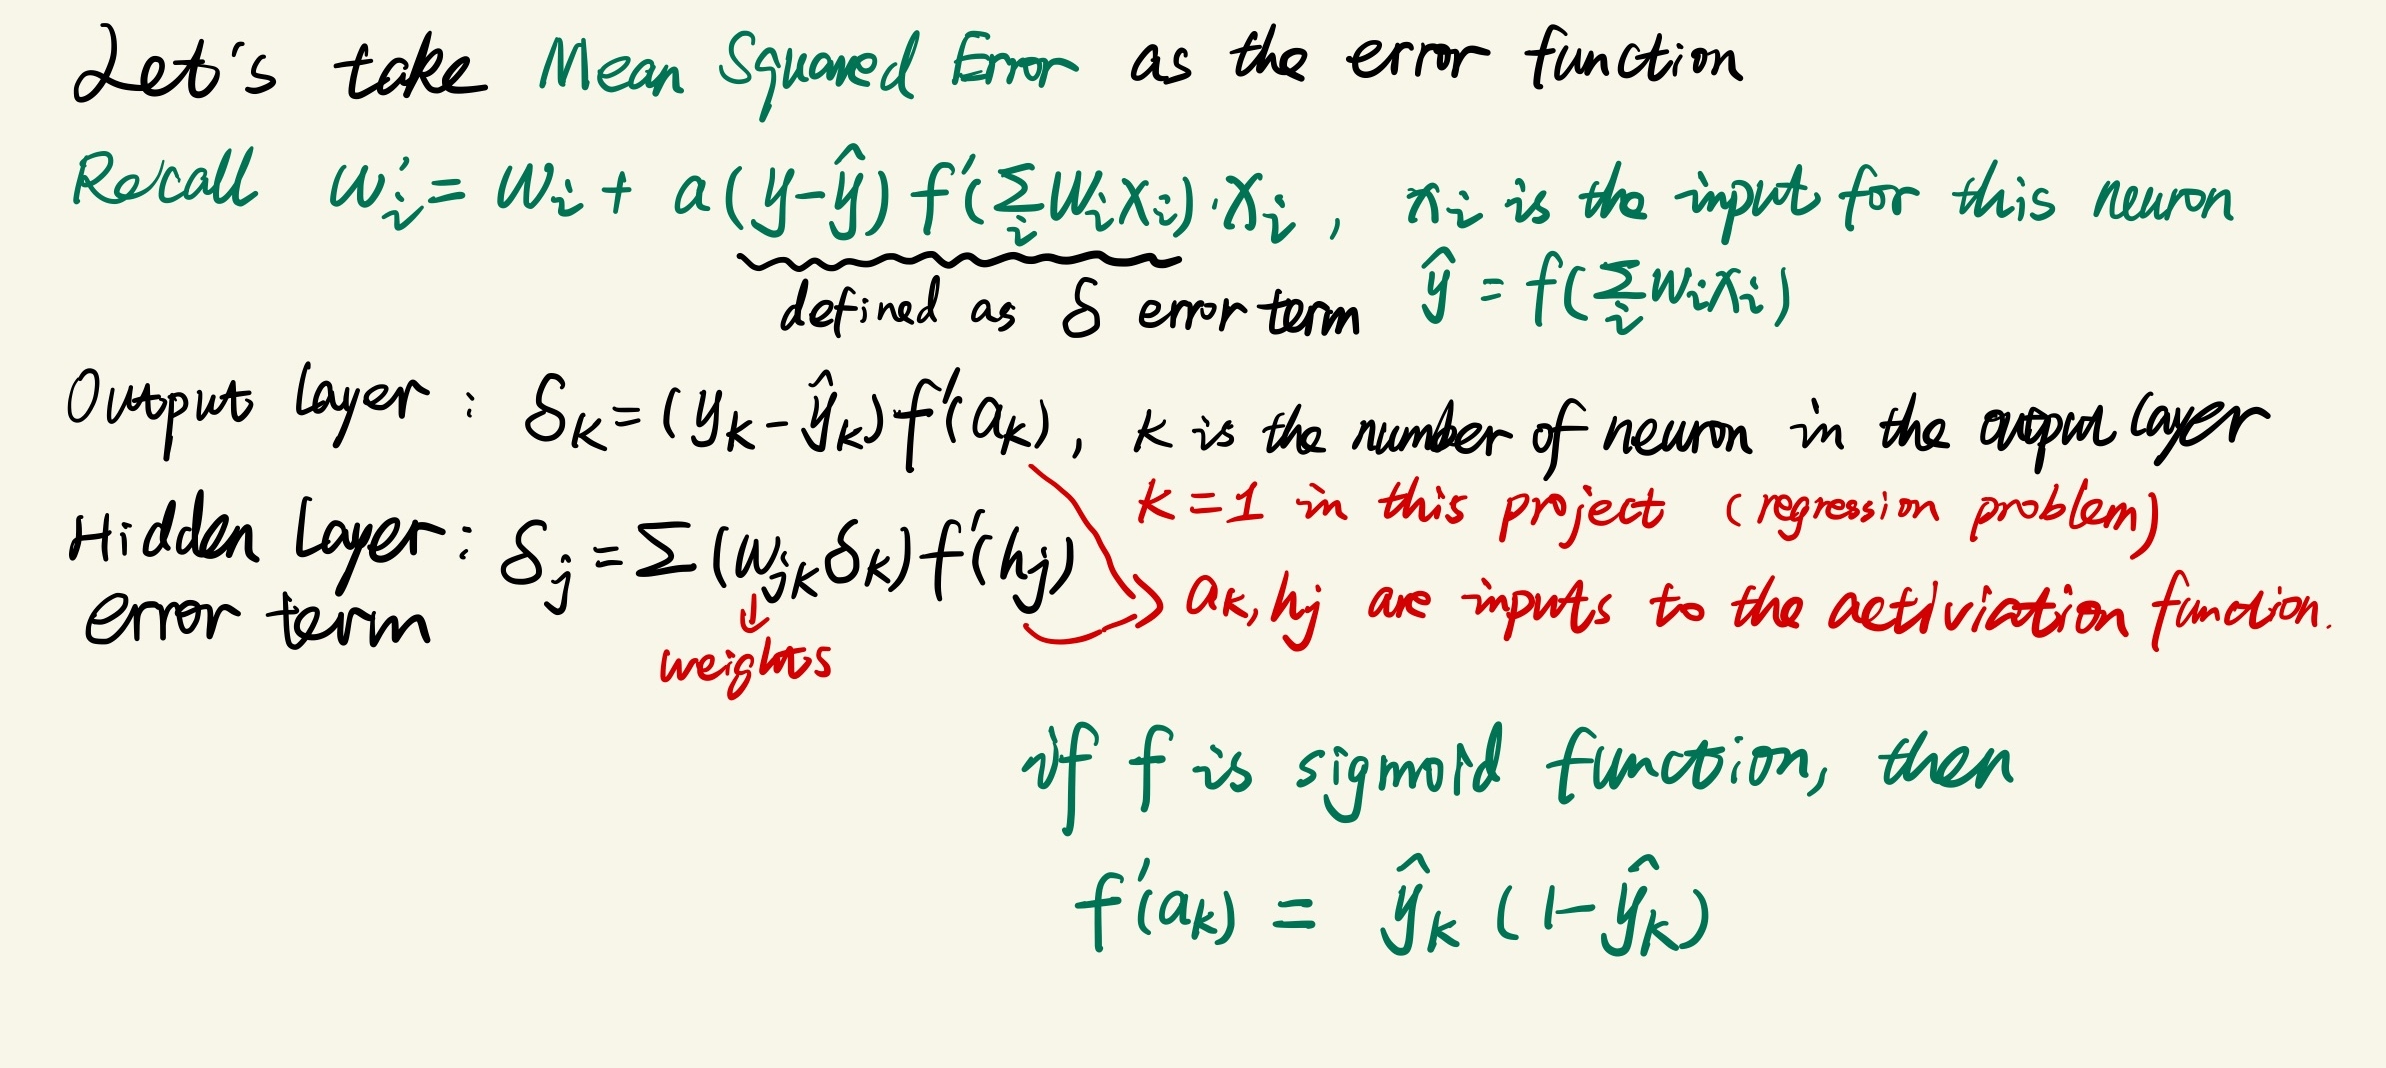 Let's take Mean Squared Error as the error function
Recall wᵢ' = wᵢ + a(y-ŷ) f'(∑ᵢ wᵢxᵢ)·xᵢ , xᵢ is the input for this neuron
defined as δ error term ŷ = f(∑ᵢ wᵢxᵢ)
Output layer : δₖ = (yₖ-ŷₖ)f'(aₖ), k is the number of neuron in the output layer
k=1 in this project (regression problem)
Hidden Layer : δⱼ = ∑(wⱼₖδₖ)f'(hⱼ)
error term aₖ, hⱼ are inputs to the activiation function.
weights
if f is sigmoid function, then
f'(aₖ) = ŷₖ (1-ŷₖ)